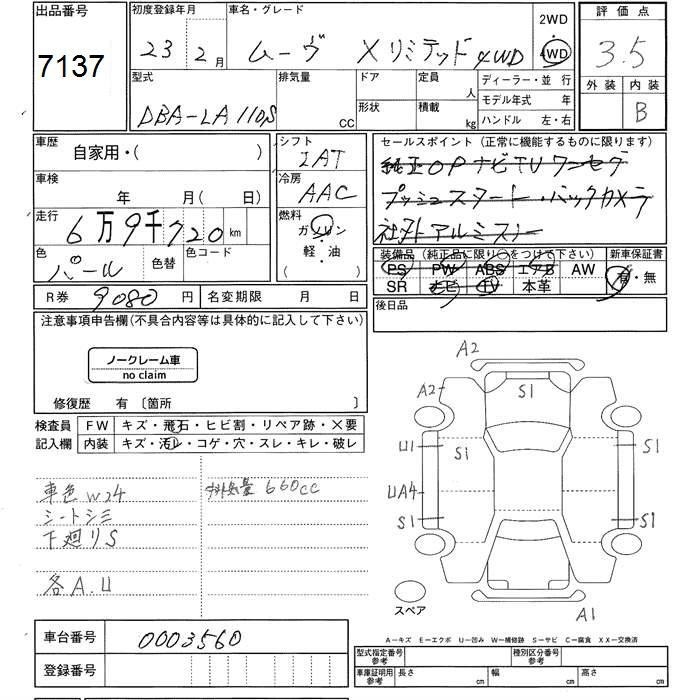 出品番号
7137
初度登録年月
23年2月
車名・グレード
ムーヴ Xリミテッド 4WD
2WD
4WD
評価点
3.5
外装 内装
B
型式
DBA-LA110S
排気量
cc
ドア
形状
定員
人
積載
kg
ディーラー・並行
モデル年式 年
ハンドル 左・右
車歴
自家用・( )
シフト
IAT
車検
年 月( 日)
冷房
AAC
走行
6万9千720km
燃料
ガソリン
軽・油
( )
色
パール
色替
色コード
R券 9080円
名変期限 月 日
セールスポイント(正常に機能するものに限ります)
純正OPナビTVワンセグ
プッシュスタート・バックカメラ
社外アルミスノー
装備品(純正品に限り○をつけて下さい)
新車保証書
PS PW ABS エアB AW
SR ナビ TV 本革
有・無
後日品
注意事項申告欄(不具合内容等は具体的に記入して下さい)
ノークレーム車
no claim
修復歴 有〔箇所 〕
検査員
記入欄
FW キズ・飛石・ヒビ割・リペア跡・×要
内装 キズ・汚レ・コゲ・穴・スレ・キレ・破レ
車色W24
排気量660cc
シートシミ
下廻りS
各A.U
A2
A2
S1
U1
S1
S1
UA4
S1
S1
スペア
A1
A-キズ E-エクボ U-凹み W-補修跡 S-サビ C-腐食 XX-交換済
車台番号 0003560
登録番号
型式指定番号
参考
種別区分番号
参考
車庫証明用
参考
長さ cm 幅 cm 高さ cm